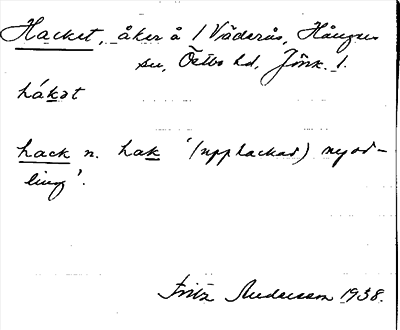 Hacket, åker å 1 Väderås, Hånger
sn, Östbo hd, Jönk. l.
håkət
hack n. hak '(upphackad) nyod-
ling'.
Fritz Andersson 1938.